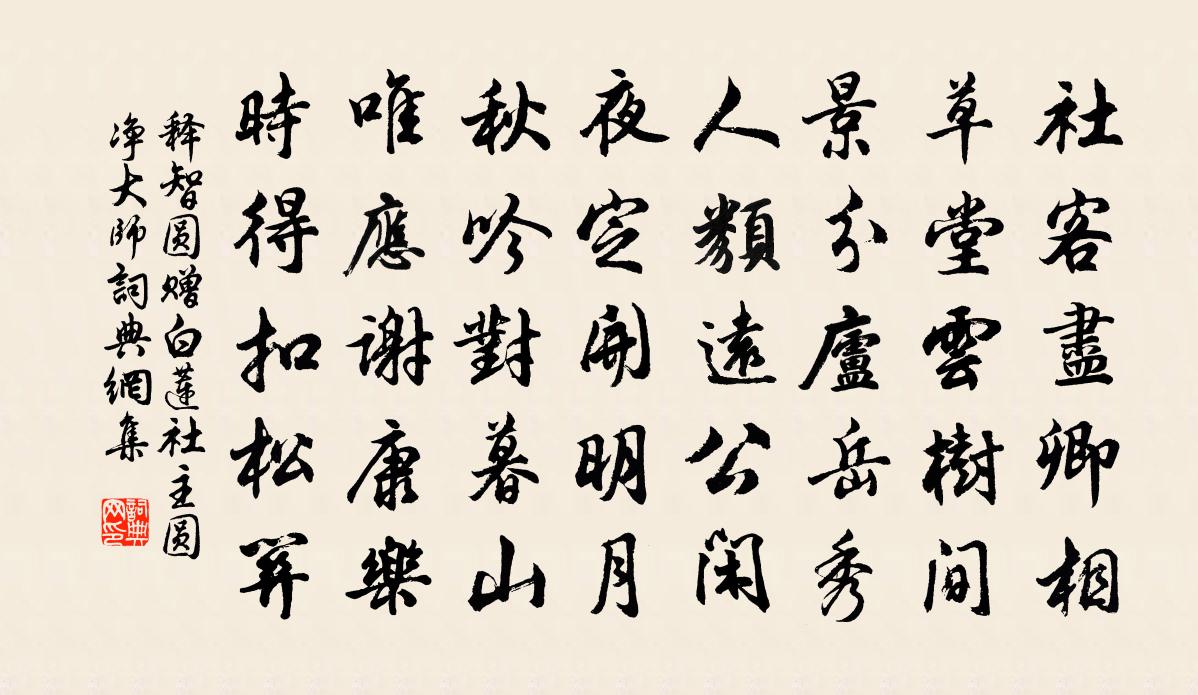 社客盡卿相
草堂雲樹間
景分廬岳秀
人類遠公閑
夜定開明月
秋吟對暮山
唯應謝康樂
時得扣松關
释智圆赠白蓮社主圆
净大師詞典網集
詞典
网印